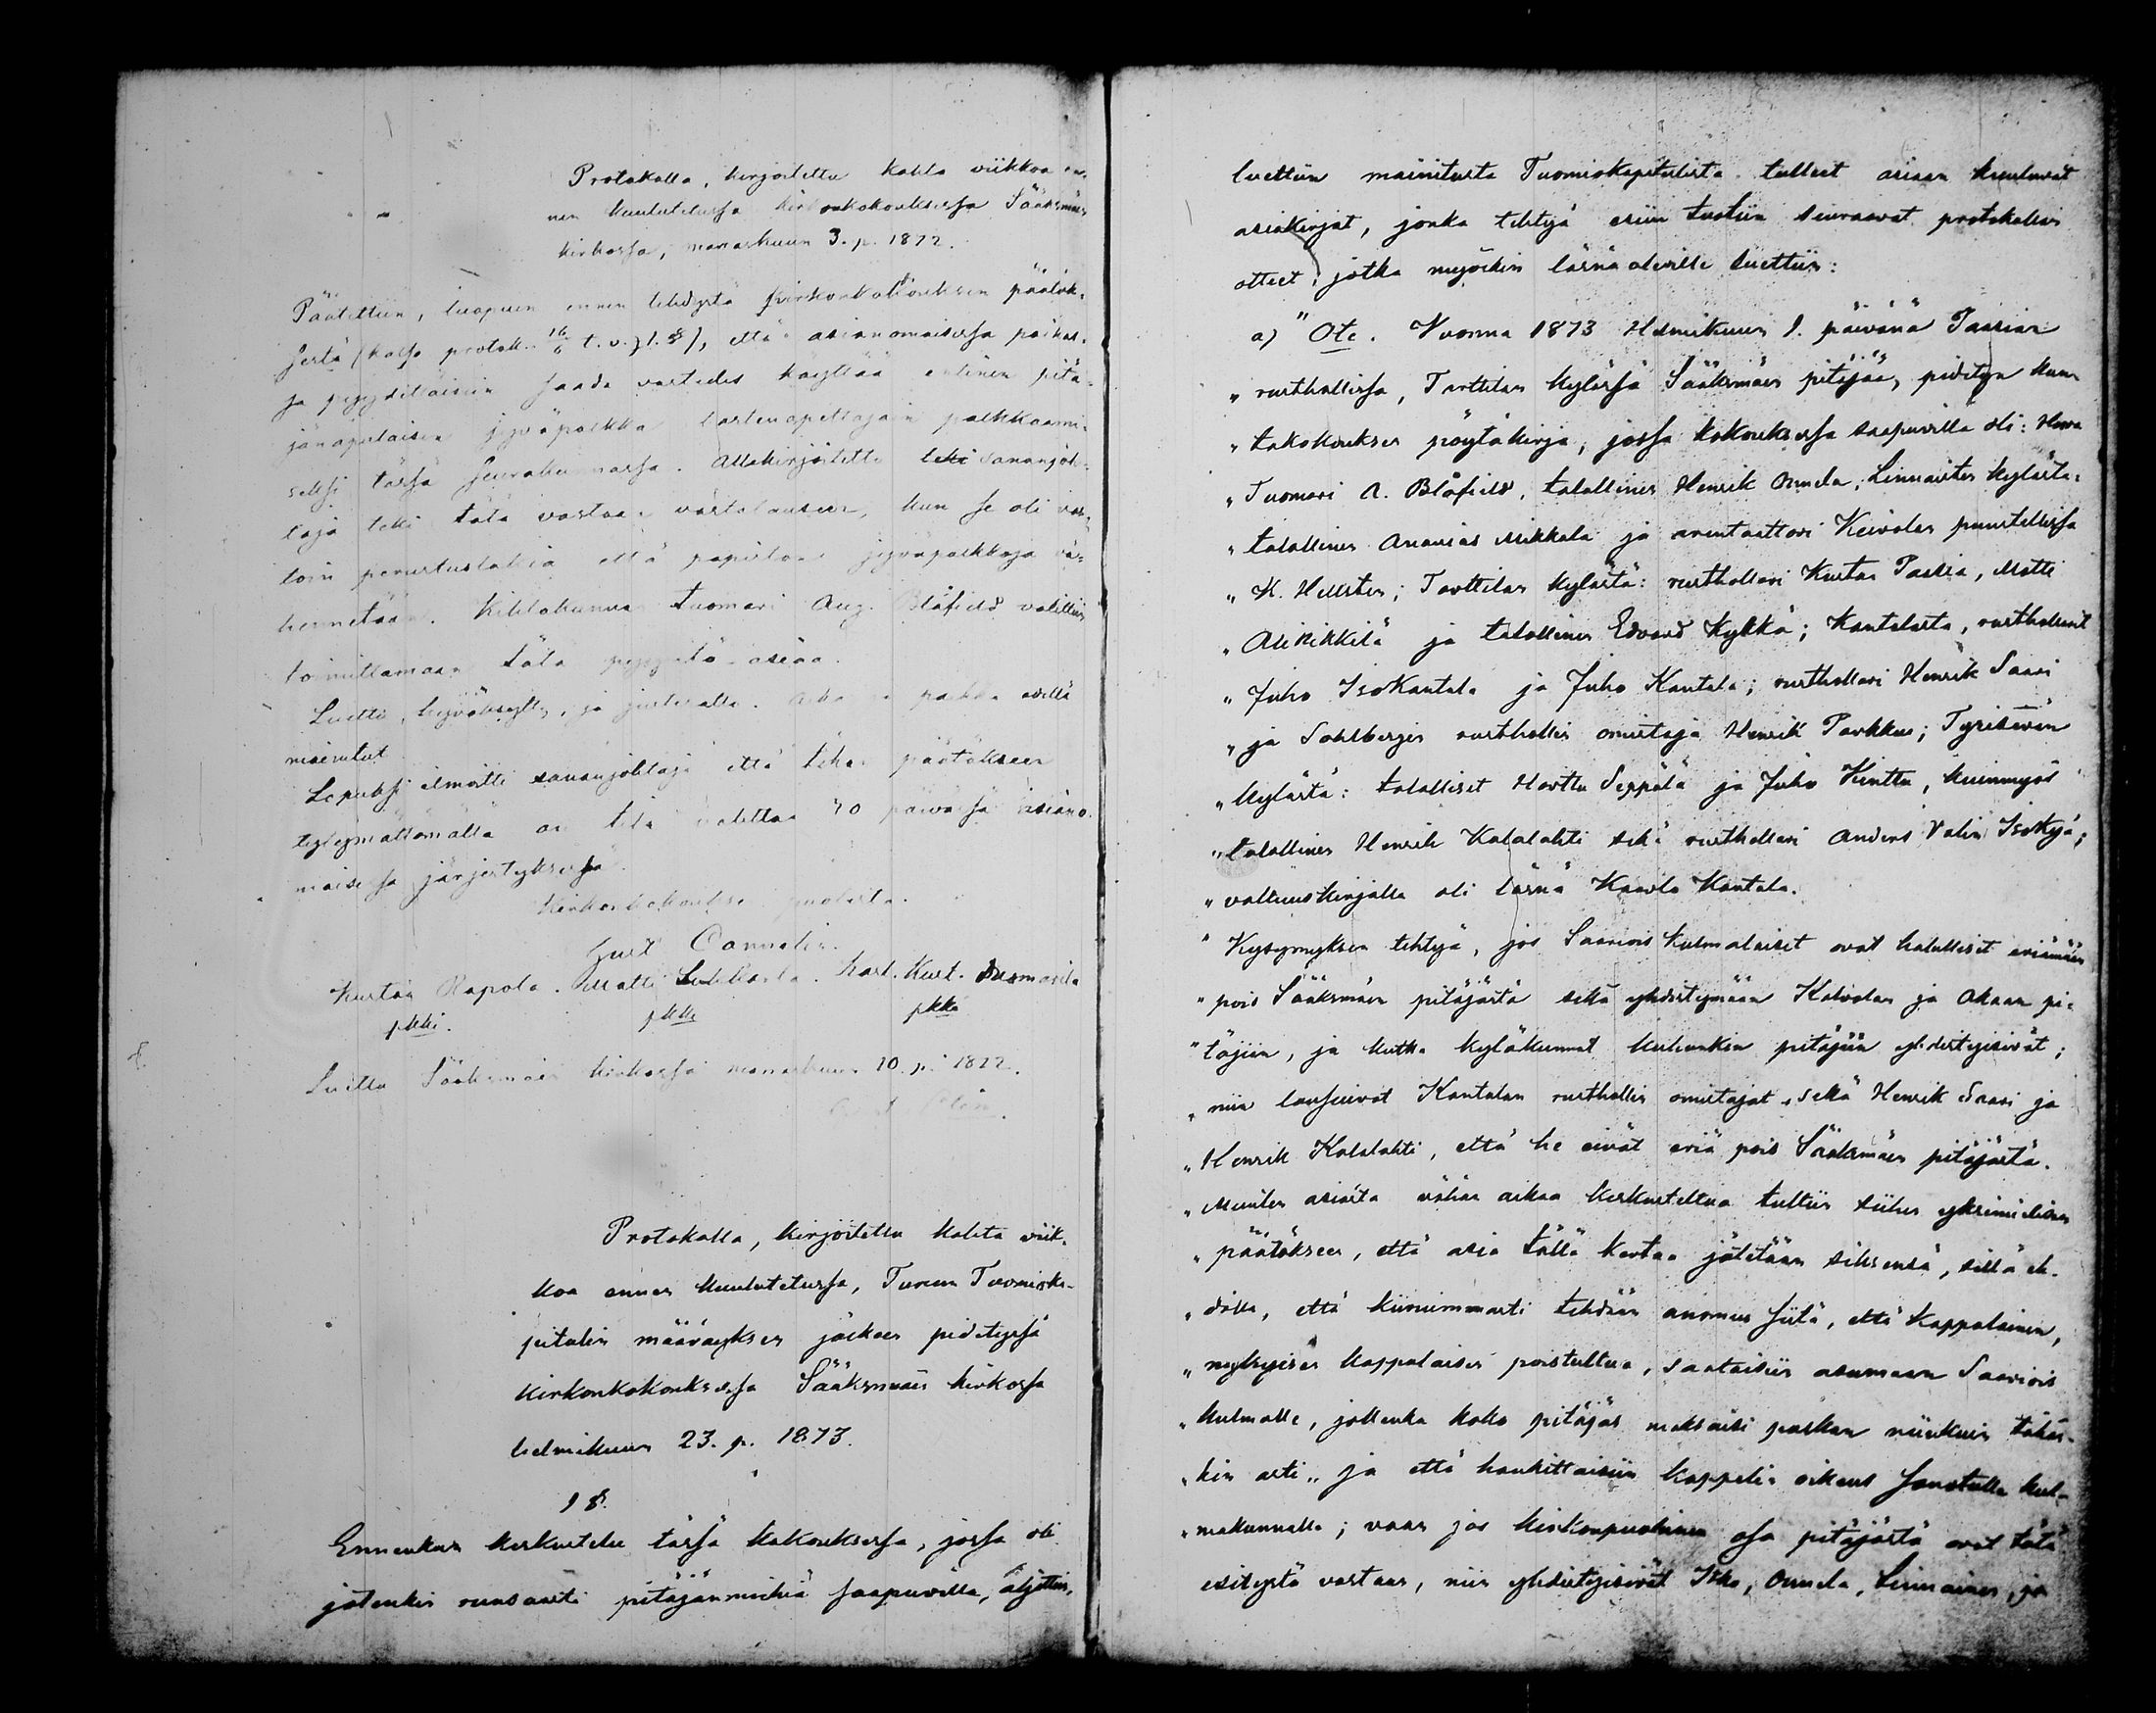 Protokolla, kirjoitettu kahta viikkoa en-
nen kuulutetussa kirkonkokouksessa Sääksmäen
kirkossa, marraskuun 3. p. 1872.
Päätettiin, luopuen ennen tehdystä kirkonkokouksen päätök-
sestä (katso protok. 16/6 t. v. 1. §), että asianomaisessa paikas-
sa pyydettäisiin saada vastedes käyttää entinen pitä-
jänapulaisen jyväpalkka lastenopettajain palkkaami-
seksi tässä seurakunnassa. Allekirjoitettu sananjoh-
taja teki tätä vastaan vastalauseen, kun se oli
toin perustuslakia että papiston jyväpalkkoja vä-
hennetään. Kihlakunnan tuomari Aug. Blåfield valittiin
toimittamaan tätä pyyntö-asiaa.
Luettu, hyväksytty, ja justeerattu. Aika ja paikka edellä
mainitut.
Lopuksi ilmoitti sananjohtaja että tähän päätökseen
tyytymättömällä on tila valittaa 30 päivässä asiano-
maisessa järjestyksessä.
Kirkonkokouksen puolesta.
Gust. Cannelin.
Kustaa Rapola. Matti Karl. Kust.
pkki. pkka pkka
Luettu Sääksmäen kirkossa marraskuun 10. p. 1872.
Protokolla, kirjoitettu kahta viik-
koa ennen kuulutetussa, Turun Tuomioka-
pitulin määräyksen jälkeen pidetyssä
kirkonkokouksessa Sääksmäen kirkossa
helmikuun 23. p. 1873.
1 §.
Ennenkun keskustelu tässä kokouksessa, jossa oli
jotenkin runsaasti pitäjänmiehiä saapuvilla, aljettiin,
luettiin mainitusta Tuomiokapitulista tulleet asiaan kuuluvat
asiakirjat, jonka tehtyä esiin tuotiin seuraavat protokollan
otteet, jotka myöskin läsnä oleville luettiin:
a) "Ote. Vuonna 1873 Helmikuun 1. päivänä Passian
" rusthollissa, Tarttilan kylässä Sääksmäen pitäjää, pidetyn kun-
" takokouksen pöytäkirja, jossa kokouksessa saapuvilla oli: Herra
" Tuomari A. Blåfield, talollinen Henrik Annila, Linnaisten kylästä:
" talollinen Ananias Mikkola ja arentaattori Keivolan puustellissa
" K. Hellsten; Tarttilan kylästä: rusthollari Kustaa Passia, Matti
" Alikikkilä ja talollinen Edvard Kykkä; Kantalasta, rusthollarit
" Juho IsoKantala ja Juho Kantala; rusthollari Henrik Saari
" ja Sohlbergin rusthollin omistaja Henrik Parkkus;
" kylästä: talolliset Herttu Seppälä ja Juho Kinttu, kuinmyös
" talollinen Henrik Kalalahti sekä rusthollari Anders Valin Isokyä;
" valtuuskirjalla oli läsnä Kaarlo Kantala.
" Kysymyksen tehtyä, jos Saarioiskulmalaiset ovat halulliset eriämään
" pois Sääksmäen pitäjästä sekä yhdistymään Kalvolan ja Akaan pi-
" täjiin, ja kutka kyläkunnat kuhunkin pitäjään yhdistyisivät;
" niin lausuivat Kantalan rusthollin omistajat, sekä Henrik Saari ja
" Henrik Kalalahti, että he eivät eriä pois Sääksmäen pitäjästä.
" Muuten asiasta vähän aikaa keskusteltua tultiin siihen yksimieliseen
" päätökseen, että asia tällä kertaa jätetään siksensä, sillä eh-
" dolla, että kiiruimmasti tehdään anomus siitä, että kappalainen,
" nykyisen kappalaisen poistultua, saataisiin asumaan Saariois
" kulmalle, jollenka koko pitäjäs maksaisi palkan niinkuin tähän-
" kin asti" ja että hankittaisiin kappelin oikeus sanotulle kul-
" makunnalle; vaan jos kirkonpuolinen osa pitäjästä ovat tätä
esitystä vastaan, niin yhdistyisivät Isko, Annila, Linnainen, ja